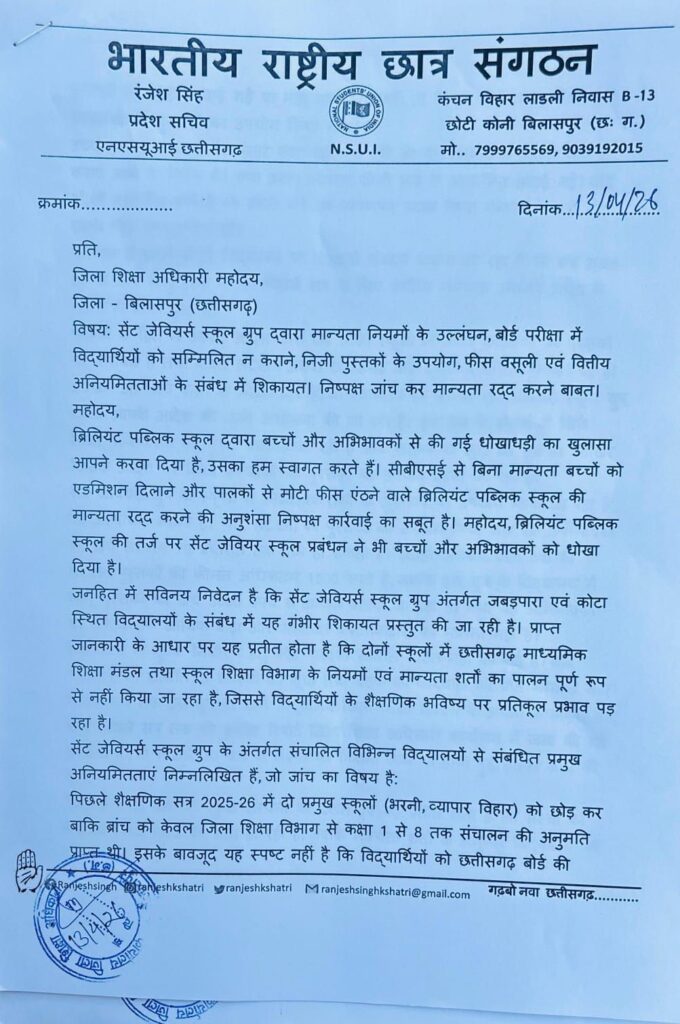 भारतीय राष्ट्रीय छात्र संगठन
रंजेश सिंह
प्रदेश सचिव
एनएसयूआई छत्तीसगढ़
NATIONAL STUDENTS' UNION OF INDIA
N.S.U.I.
कंचन विहार लाडली निवास B -13
छोटी कोनी बिलासपुर (छः ग.)
मो.. 7999765569, 9039192015
क्रमांक...................
दिनांक...13/04/26
प्रति,
जिला शिक्षा अधिकारी महोदय,
जिला - बिलासपुर (छत्तीसगढ़)
विषय: सेंट जेवियर्स स्कूल ग्रुप द्वारा मान्यता नियमों के उल्लंघन, बोर्ड परीक्षा में
विद्यार्थियों को सम्मिलित न कराने, निजी पुस्तकों के उपयोग, फीस वसूली एवं वित्तीय
अनियमितताओं के संबंध में शिकायत। निष्पक्ष जांच कर मान्यता रद्द करने बाबत।
महोदय,
ब्रिलियंट पब्लिक स्कूल द्वारा बच्चों और अभिभावकों से की गई धोखाधड़ी का खुलासा
आपने करवा दिया है, उसका हम स्वागत करते हैं। सीबीएसई से बिना मान्यता बच्चों को
एडमिशन दिलाने और पालकों से मोटी फीस एंठने वाले ब्रिलियंट पब्लिक स्कूल की
मान्यता रद्द करने की अनुशंसा निष्पक्ष कार्रवाई का सबूत है। महोदय, ब्रिलियंट पब्लिक
स्कूल की तर्ज पर सेंट जेवियर स्कूल प्रबंधन ने भी बच्चों और अभिभावकों को धोखा
दिया है।
जनहित में सविनय निवेदन है कि सेंट जेवियर्स स्कूल ग्रुप अंतर्गत जबड़पारा एवं कोटा
स्थित विद्यालयों के संबंध में यह गंभीर शिकायत प्रस्तुत की जा रही है। प्राप्त
जानकारी के आधार पर यह प्रतीत होता है कि दोनों स्कूलों में छत्तीसगढ़ माध्यमिक
शिक्षा मंडल तथा स्कूल शिक्षा विभाग के नियमों एवं मान्यता शर्तों का पालन पूर्ण रूप
से नहीं किया जा रहा है, जिससे विद्यार्थियों के शैक्षणिक भविष्य पर प्रतिकूल प्रभाव पड़
रहा है।
सेंट जेवियर्स स्कूल ग्रुप के अंतर्गत संचालित विभिन्न विद्यालयों से संबंधित प्रमुख
अनियमितताएं निम्नलिखित हैं, जो जांच का विषय है:
पिछले शैक्षणिक सत्र 2025-26 में दो प्रमुख स्कूलों (भरनी, व्यापार विहार) को छोड़ कर
बाकि ब्रांच को केवल जिला शिक्षा विभाग से कक्षा 1 से 8 तक संचालन की अनुमति
प्राप्त थी। इसके बावजूद यह स्पष्ट नहीं है कि विद्यार्थियों को छत्तीसगढ़ बोर्ड की
Ranjeshsingh ranjeshkshatri ranjeshkshatri ranjeshsinghkshatri@gmail.com गढ़बो नवा छत्तीसगढ़...........
कार्यालय जिला शिक्षा
13/4/2